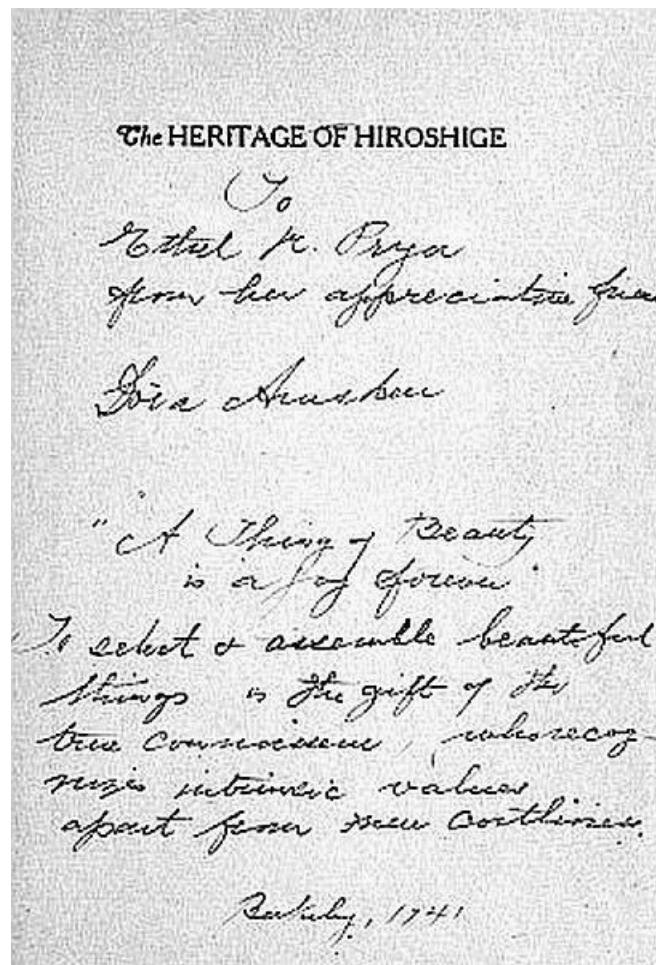 The HERITAGE OF HIROSHIGE
To
Ethel K. Pryor
from her appreciative frien
Dora Amsden
"A Thing of Beauty
is a Joy forever"
To select & assemble beautiful
things is the gift of the
true connoisseur, who recog-
nizes intrinsic values
apart from mere costliness.
Berkeley, 1941